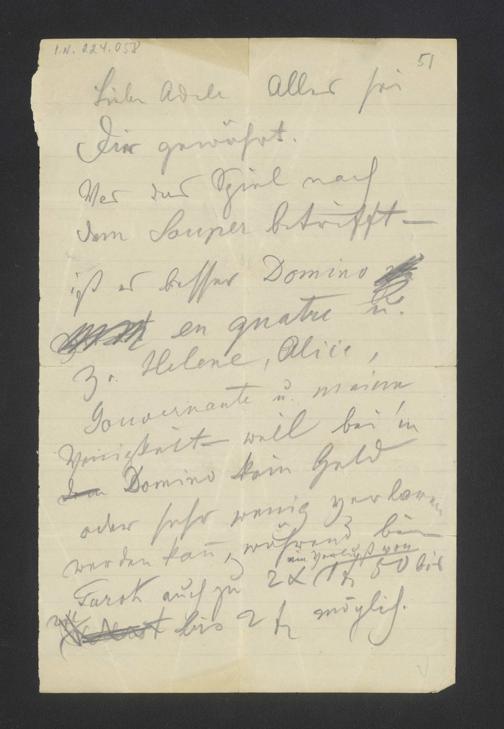 I.N. 224.058
51
Liebe Adele Alles sei
Dir gewährt.
Was das Spiel nach
dem Souper betrifft —
ist es besser Domino
en quatre u.
z. Helene, Alice,
Gouvernante u. meine
Wenigkeit — weil bei'm
Domino kein Geld
oder sehr wenig verloren
werden kann, während bei
ein Verlust von
Tarok auch zu 2 x 1 f 50 bis
bis 2 f möglich.